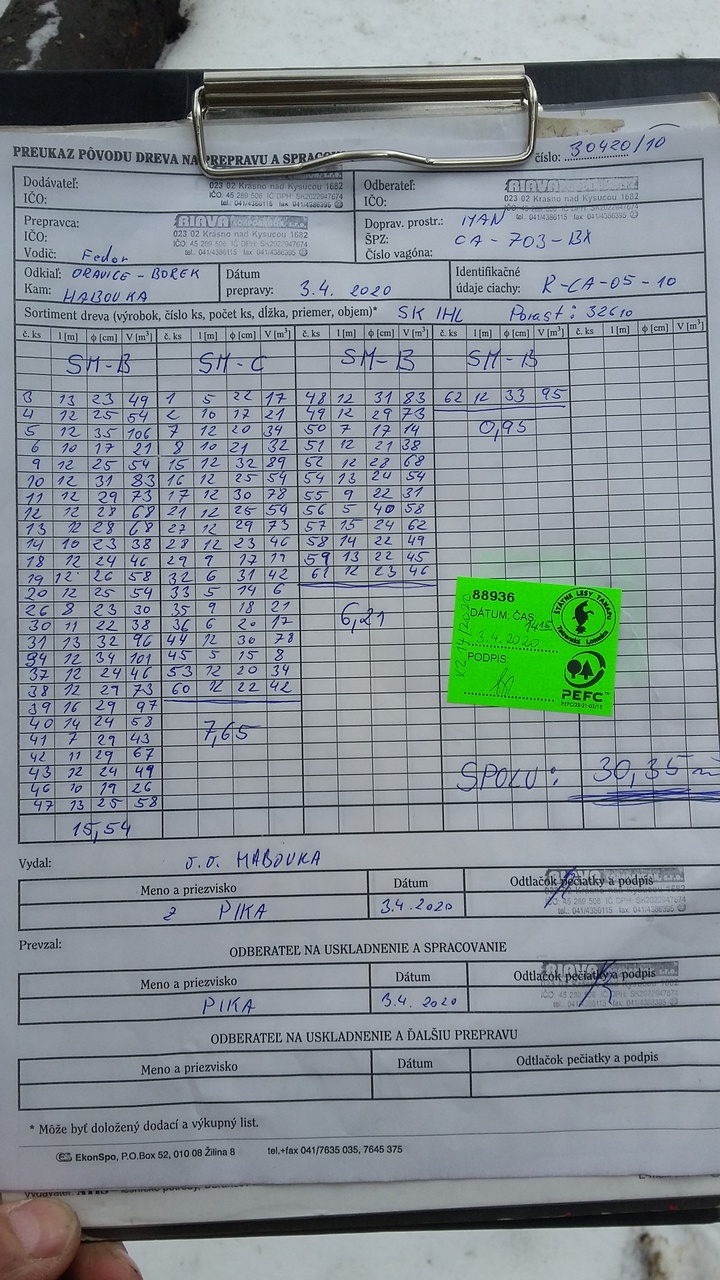 PREUKAZ PÔVODU DREVA NA PREPRAVU A SPRACOV číslo: 30420/10
Dodávateľ: 023 02 Krásno nad Kysucou 1682 Odberateľ: RIAVA
IČO: IČO: 45 289 506 IČ DPH: SK2022947674 IČO: 023 02 Krásno nad Kysucou 1682
tel.: 041/4386115 fax: 041/4386395
Prepravca: RIAVA Doprav. prostr.: MAN
IČO: 023 02 Krásno nad Kysucou 1682 ŠPZ: CA - 703 - BX
IČO: 45 289 506 IČ DPH: SK2022947674
Vodič: Fedor tel.: 041/4386115 fax: 041/4386395 Číslo vagóna:
Odkiaľ: ORAVICE - BOREK Dátum Identifikačné
Kam: HABOVKA prepravy: 3.4. 2020 údaje ciachy: R-CA-05-10
Sortiment dreva (výrobok, číslo ks, počet ks, dĺžka, priemer, objem)* SK IHL Porast: 32610
č. ks l [m] ϕ [cm] V [m³] č. ks l [m] ϕ [cm] V [m³] č. ks l [m] ϕ [cm] V [m³] č. ks l [m] ϕ [cm] V [m³] č. ks l [m] ϕ [cm] V [m³]
SM-B SM-C SM-B SM-B
3 13 23 49 1 5 22 17 48 12 31 83 62 12 33 95
4 12 25 54 2 10 17 21 49 12 29 73
5 12 35 106 7 12 20 34 50 7 17 14 0,95
6 10 17 21 8 10 21 32 51 12 21 38
9 12 25 54 15 12 32 89 52 12 28 68
10 12 31 83 16 12 25 54 54 13 24 54
11 12 29 73 17 12 30 78 55 9 22 31
12 12 28 68 21 12 25 54 56 5 40 58
13 12 28 68 27 12 29 73 57 15 24 62
14 10 23 38 28 12 23 46 58 14 22 49
18 12 24 46 29 9 17 19 59 13 22 45
19 12 26 58 32 6 31 42 61 12 23 46
20 12 25 54 33 5 14 6
26 8 23 30 35 9 18 21 6,21
30 11 22 38 36 6 20 17
31 13 32 96 44 12 30 78
34 12 34 101 45 5 15 8
37 12 24 46 53 12 20 34
38 12 29 73 60 12 22 42
39 16 29 97
40 14 24 58 7,65
41 7 29 43
42 11 29 67
43 12 24 49
46 10 19 26
47 13 25 58
15,54
88936
DÁTUM, ČAS:
3.4.2020
PODPIS:
ŠTÁTNE LESY TANAPu
Tatranská Lomnica
PEFC™
SPOLU: 30,35 m
Vydal: O.O. HABOVKA
Meno a priezvisko Dátum Odtlačok pečiatky a podpis
PIKA 3.4.2020
Prevzal: ODBERATEĽ NA USKLADNENIE A SPRACOVANIE
Meno a priezvisko Dátum Odtlačok pečiatky a podpis
PIKA 3.4. 2020
ODBERATEĽ NA USKLADNENIE A ĎALŠIU PREPRAVU
Meno a priezvisko Dátum Odtlačok pečiatky a podpis
* Môže byť doložený dodací a výkupný list.
EkonSpo, P.O.Box 52, 010 08 Žilina 8 tel.+fax 041/7635 035, 7645 375